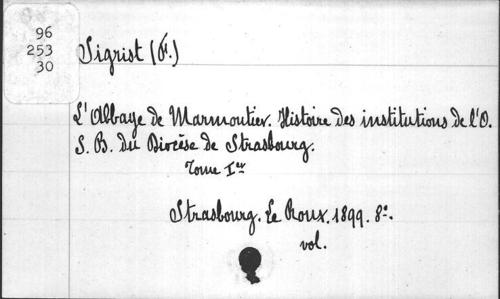 96
253
30
Sigrist (F.)
L'Abbaye de Marmoutier. Histoire des institutions de l'O.
S. B. du Diocèse de Strasbourg.
Tome I er
Strasbourg. Le Roux. 1899. 8º.
vol.